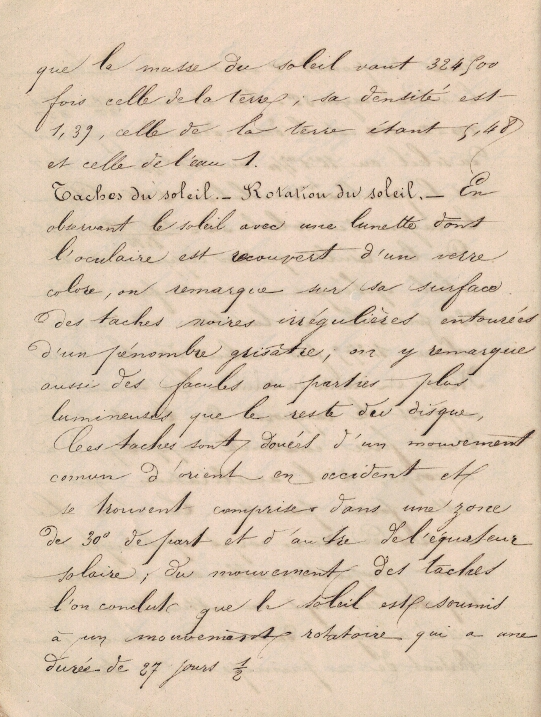 que la masse du soleil vaut 324500
fois celle de la terre ; sa densité est
1,39, celle de la terre étant 5,48
et celle de l'eau 1.
Taches du soleil. — Rotation du soleil. — En
observant le soleil avec une lunette dont
l'oculaire est recouvert d'un verre
coloré, on remarque sur sa surface
des taches noires irrégulières entourées
d'un pénombre grisâtre, on y remarque
aussi des facules ou parties plus
lumineuses que le reste du disque,
Ces taches sont douées d'un mouvement
comun d'orient en occident et
se trouvent comprises dans une zone
de 30° de part et d'autre de l'équateur
solaire ; du mouvement des taches
l'on conclut que le soleil est soumis
à un mouvement rotatoire qui a une
durée de 27 jours ½